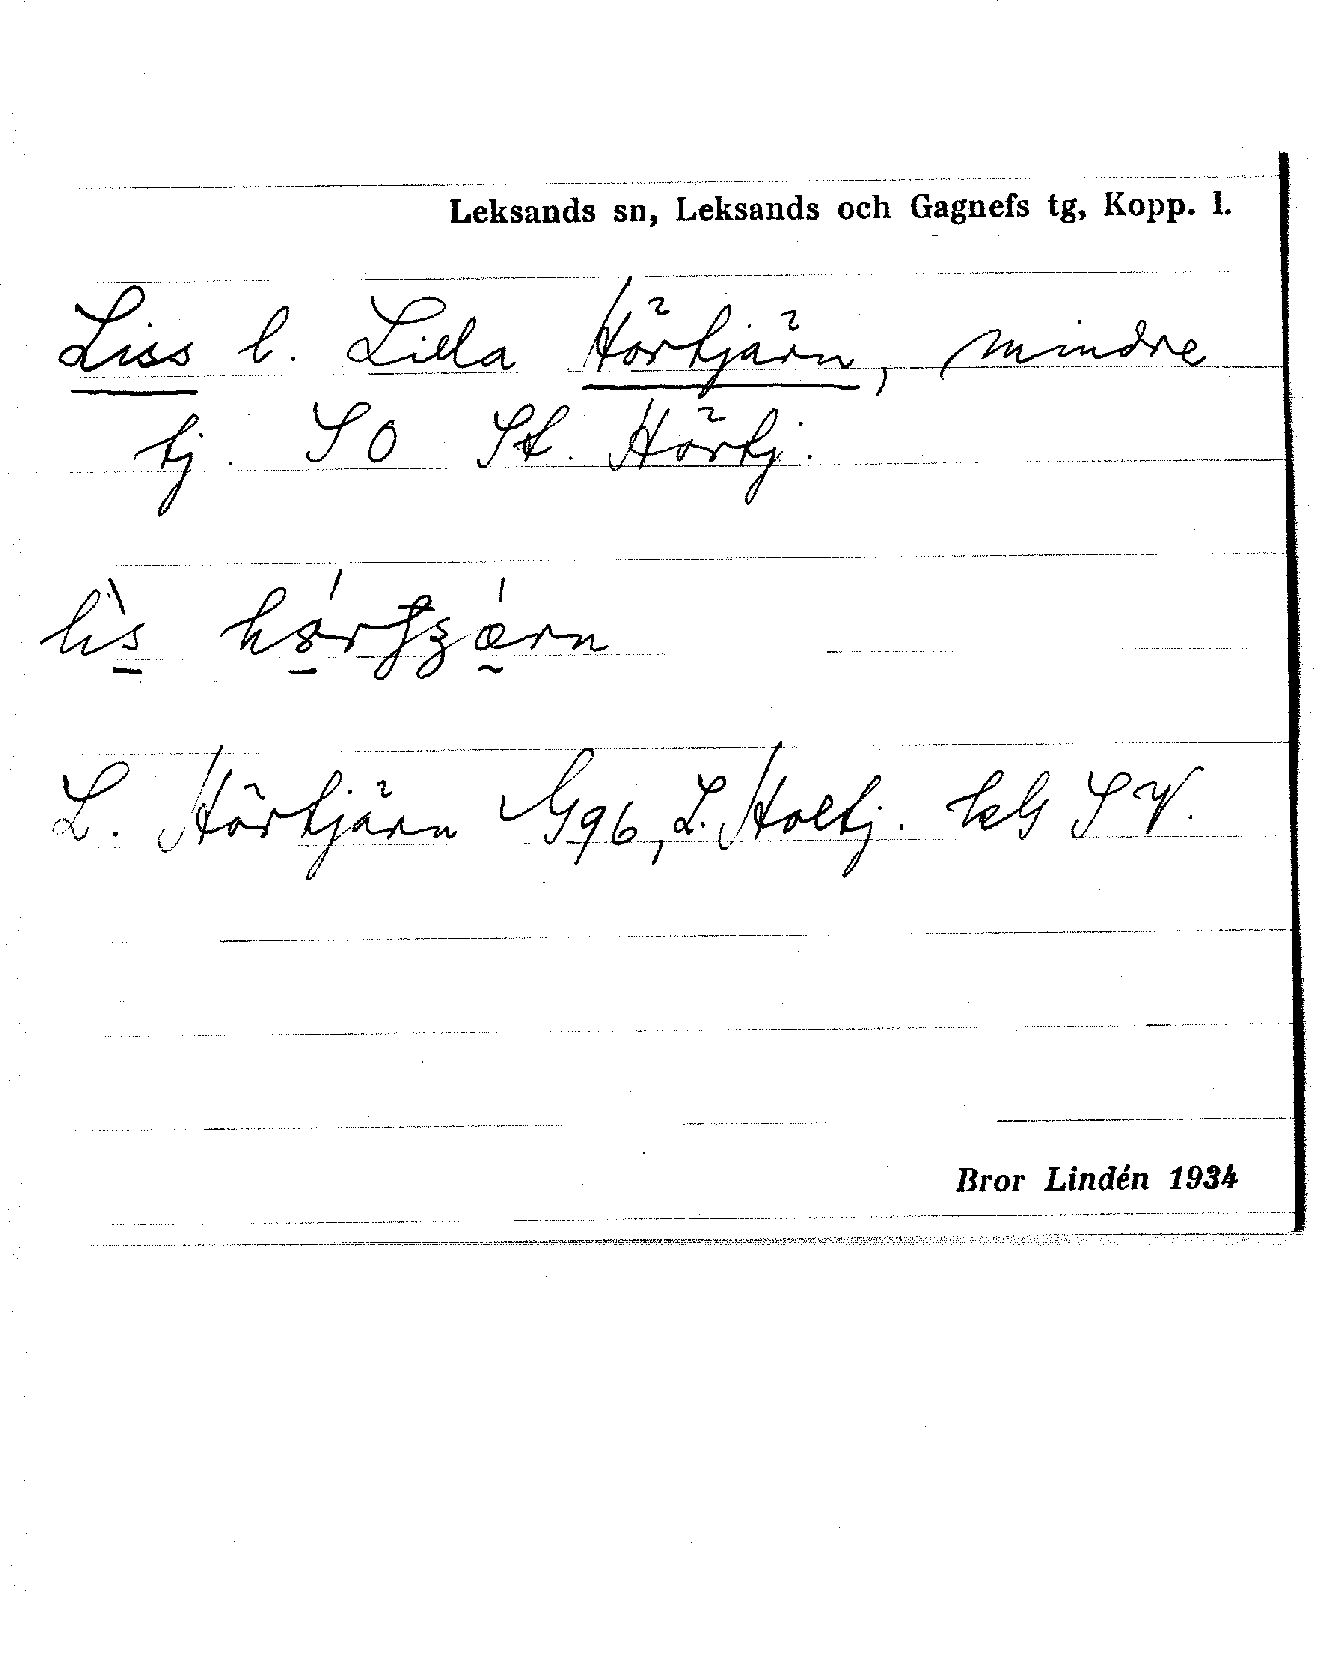 Leksands sn, Leksands och Gagnefs tg, Kopp. l.
Liss l. Lilla Hörtjärn, mindre
tj. SO St. Hörtj.
L. Hörtjärn G96, L. Holtj. SV.
Bror Lindén 1934